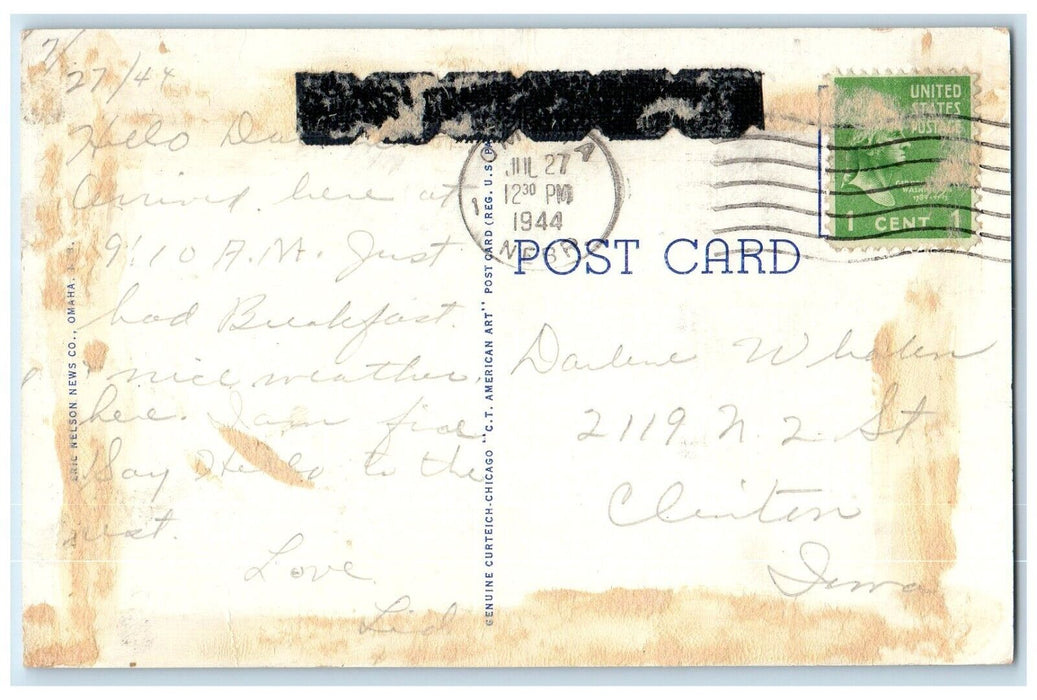 7/
27/44
Hello
Arrived here at
9:10 A.M. Just
had Breakfast.
nice weather
here. I am fine
Say Hello to the
rest.
Love
ERIC NELSON NEWS CO., OMAHA,
GENUINE CURTEICH-CHICAGO "C.T. AMERICAN ART" POST CARD (REG. U.S.
JUL 27
12 30 PM
1944
NEBR
UNITED
STATES
POSTAGE
WASHINGTON
1 CENT 1
POST CARD
Darlene Whalen
2119 N. 2 St
Clinton
Iowa